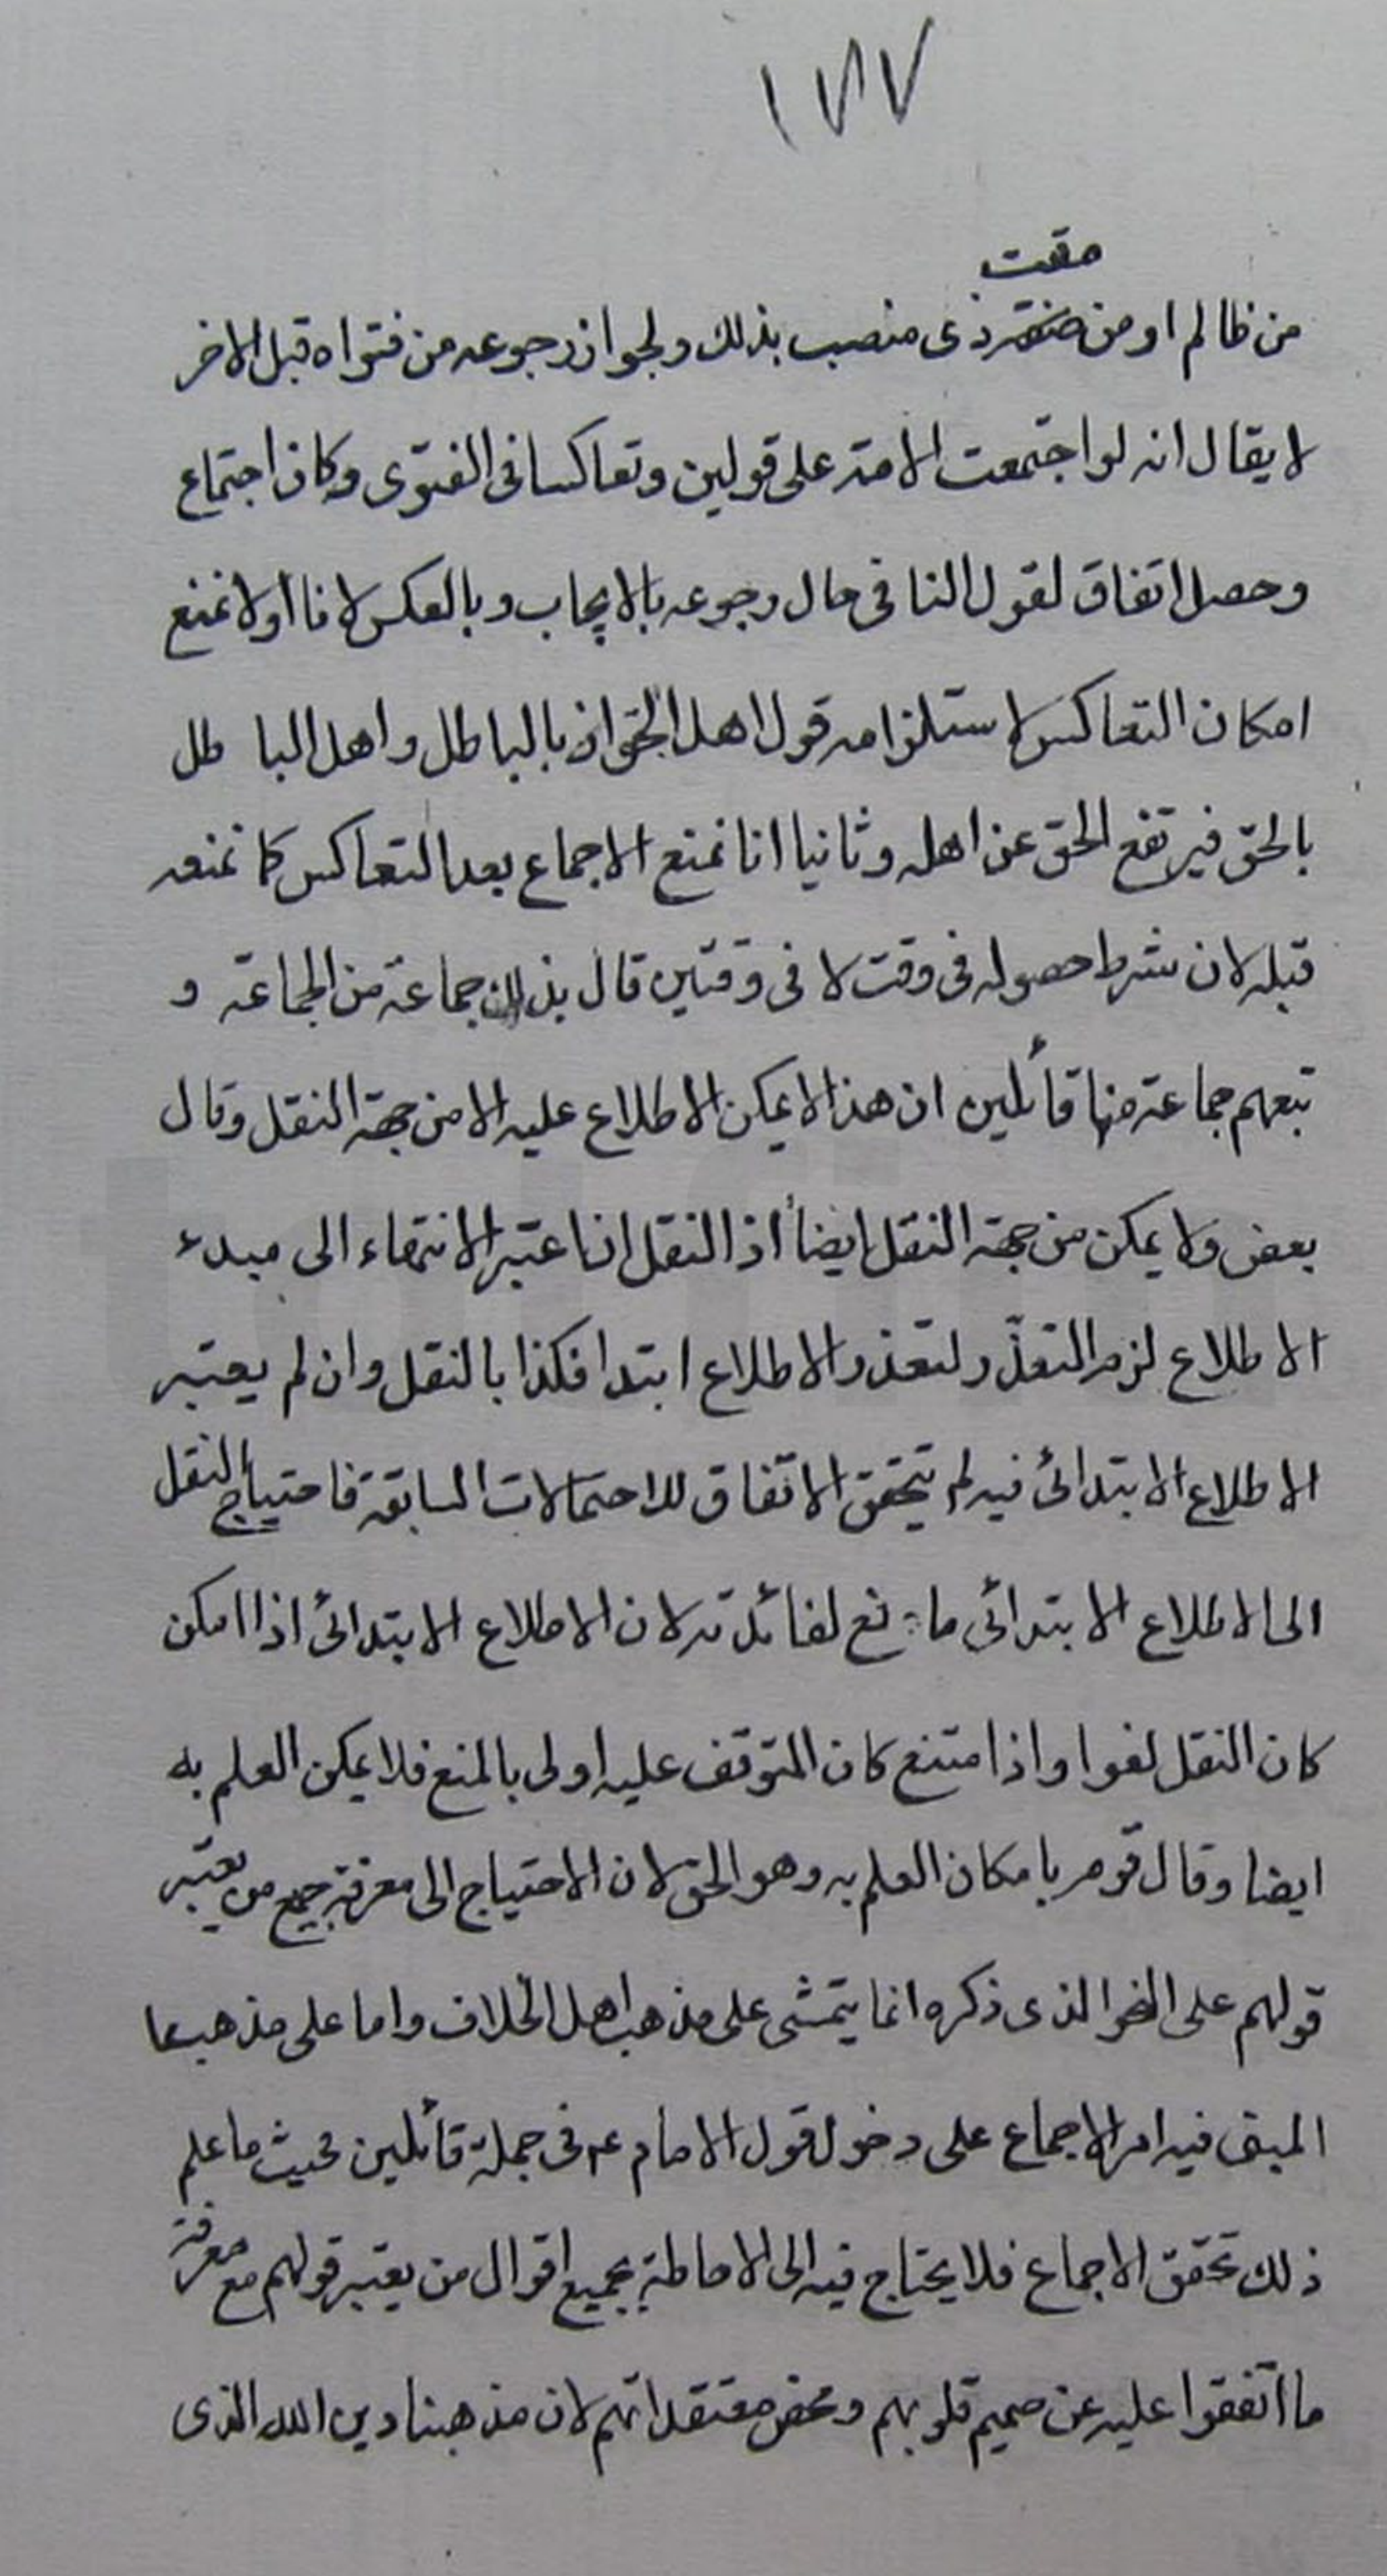 ١٨٧
مقت
من ظالم او من ذى منصب بذلك ولجواز رجوعه من فتواه قبل الاخر
لا يقال انه لو اجتمعت الامة على قولين وتعاكسا فى الفتوى وكان اجتماع
وحصل اتفاق لقول النافى حال رجوعه بالايجاب وبالعكس لانا اولا نمنع
امكان التعاكس لاستلزامه قول اهل الحق اذن بالباطل واهل البا طل
بالحق فيرتفع الحق عن اهله وثانيا انا نمنع الاجماع بعد التعاكس كما نمنعه
قبله لان شرط حصوله فى وقت لا فى وقتين قال بذلك جماعة من الجماعة و
تبعهم جماعة منها قائلين ان هذا لا يمكن الاطلاع عليه الا من جهة النقل وقال
بعض ولا يمكن من جهة النقل ايضاً اذ النقل ان اعتبر الانتهاء الى مبدء
الاطلاع لزم التعذّر لتعذر الاطلاع ابتدا فكذا بالنقل وان لم يعتبر
الاطلاع الابتدائى فيه لم يتحقق الاتفاق للاحتمالات السابقة فاحتياج النقل
الى الاطلاع الابتدائى ما نع لفائدته لان الاطلاع الابتدائى اذا امكن
كان النقل لغوا واذا امتنع كان المتوقف عليه اولى بالمنع فلا يمكن العلم به
ايضا وقال قوم بامكان العلم به وهو الحق لان الاحتياج الى معرفة جميع من يعتبر
قولهم على النحو الذى ذكره انما يتمشى على مذهب اهل الخلاف واما على مذهبنا
المبنى فيه امر الاجماع على دخول قول الامام ع فى جملة قائلين فحيث ما علم
ذلك تحقق الاجماع فلا يحتاج فيه الى الاحاطة بجميع اقوال من يعتبر قولهم مع معرفة
ما اتفقوا عليه عن صميم قلوبهم ومحض معتقداتهم لان مذهبنا دين الله الذى